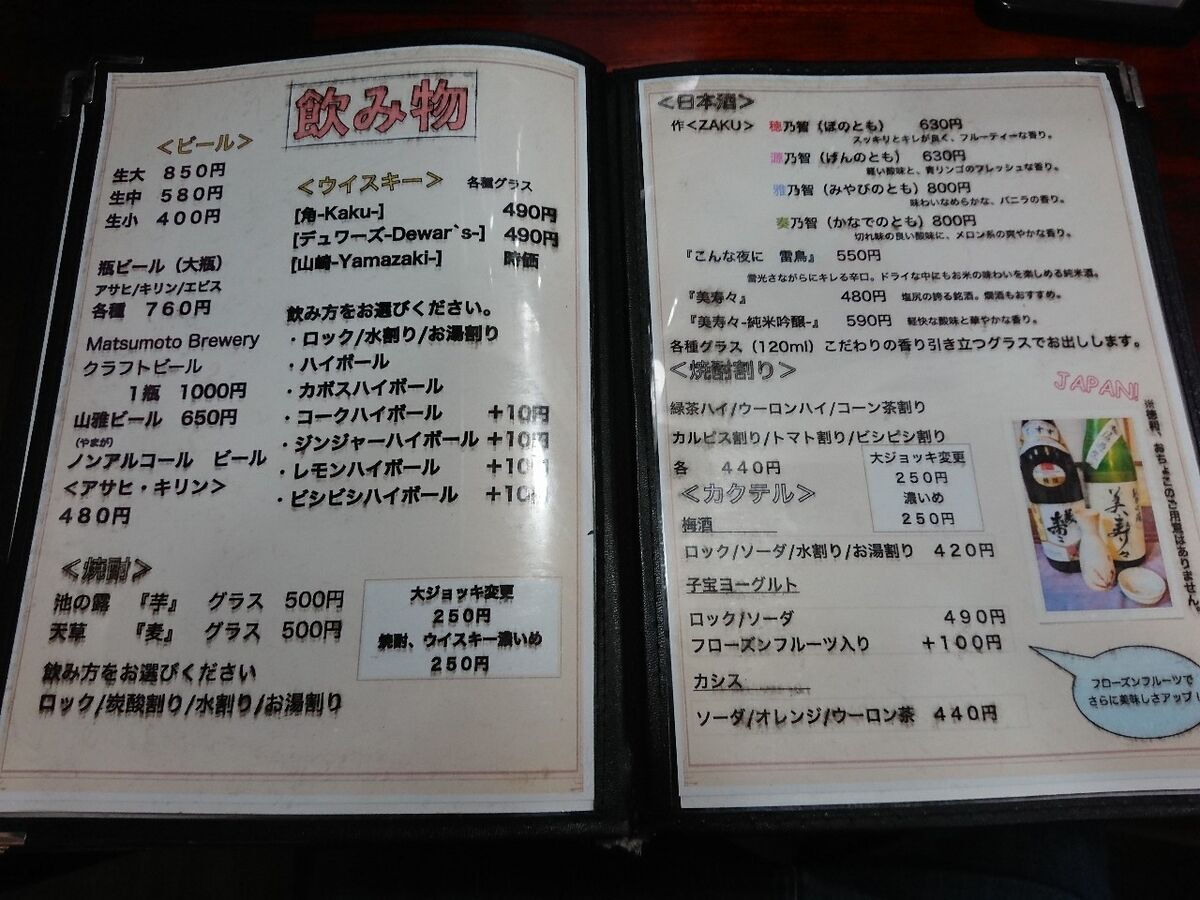 飲み物
<ビール>
生大 850円
生中 580円
生小 400円
瓶ビール（大瓶）
アサヒ/キリン/エビス
各種 760円
Matsumoto Brewery
クラフトビール
1瓶 1000円
山雅ビール 650円
(やまが)
ノンアルコール ビール
<アサヒ・キリン>
480円
<ウイスキー> 各種グラス
[角-Kaku-] 490円
[デュワーズ-Dewar`s-] 490円
[山崎-Yamazaki-] 時価
飲み方をお選びください。
・ロック/水割り/お湯割り
・ハイボール
・カボスハイボール
・コークハイボール +10円
・ジンジャーハイボール +10円
・レモンハイボール +10円
・ビシビシハイボール +10円
<焼酎>
池の露 『芋』 グラス 500円
天草 『麦』 グラス 500円
飲み方をお選びください
ロック/炭酸割り/水割り/お湯割り
大ジョッキ変更
250円
焼酎、ウイスキー濃いめ
250円
<日本酒>
作<ZAKU> 穂乃智（ほのとも） 630円
スッキリとキレが良く、フルーティーな香り。
源乃智（げんのとも） 630円
軽い酸味と、青リンゴのフレッシュな香り。
雅乃智（みやびのとも）800円
味わいなめらかな、バニラの香り。
奏乃智（かなでのとも）800円
切れ味の良い酸味に、メロン系の爽やかな香り。
『こんな夜に 雷鳥』 550円
雷光さながらにキレる辛口。ドライな中にもお米の味わいを楽しめる純米酒。
『美寿々』 480円 塩尻の誇る銘酒。燗酒もおすすめ。
『美寿々-純米吟醸-』 590円 軽快な酸味と華やかな香り。
各種グラス（120ml）こだわりの香り引き立つグラスでお出しします。
<焼酎割り>
緑茶ハイ/ウーロンハイ/コーン茶割り
カルピス割り/トマト割り/ビシビシ割り
各 440円
大ジョッキ変更
250円
濃いめ
250円
<カクテル>
梅酒
ロック/ソーダ/水割り/お湯割り 420円
子宝ヨーグルト
ロック/ソーダ 490円
フローズンフルーツ入り +100円
カシス
ソーダ/オレンジ/ウーロン茶 440円
JAPAN!
美寿々
※徳利、おちょこのご用意はありません
フローズンフルーツで
さらに美味しさアップ！